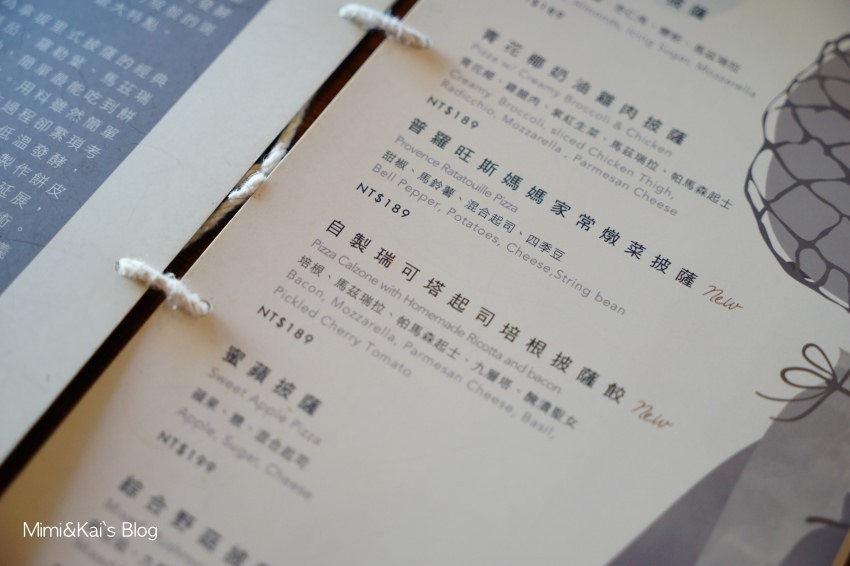 大特點。
式披薩的經典
馬茲瑞
簡單最能吃到餅
用料雖然簡單
過程卻繁瑣考
低溫發酵，
製作餅皮
延展，
Almonds, Icing Sugar, Mozzarella
青花椰奶油雞肉披薩
Pizza w/ Creamy Broccoli & Chicken
青花椰、雞腿肉、紫紅生菜、馬茲瑞拉、帕馬森起士
Creamy, Broccoli, sliced Chicken Thigh,
Radicchio, Mozzarella, Parmesan Cheese
NT$189
普羅旺斯媽媽家常燉菜披薩 New
Provence Ratatouille Pizza
甜椒、馬鈴薯、混合起司、四季豆
Bell Pepper, Potatoes, Cheese,String bean
NT$189
自製瑞可塔起司培根披薩餃 New
Pizza Calzone with Homemade Ricotta and bacon
培根、馬茲瑞拉、帕馬森起士、九層塔、醃漬聖女
Bacon, Mozzarella, Parmesan Cheese, Basil,
Pickled Cherry Tomato
NT$189
蜜蘋披薩
Sweet Apple Pizza
蘋果、糖、混合起司
Apple, Sugar, Cheese
NT$199
綜合野菇披
Mimi&Kai`s Blog